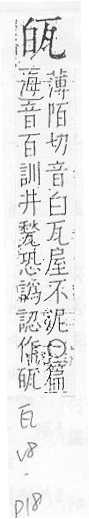 瓸
薄陌切音白瓦屋不泥〇篇
海音百訓井甃恐譌認作瓸
瓦
V8
-
P18